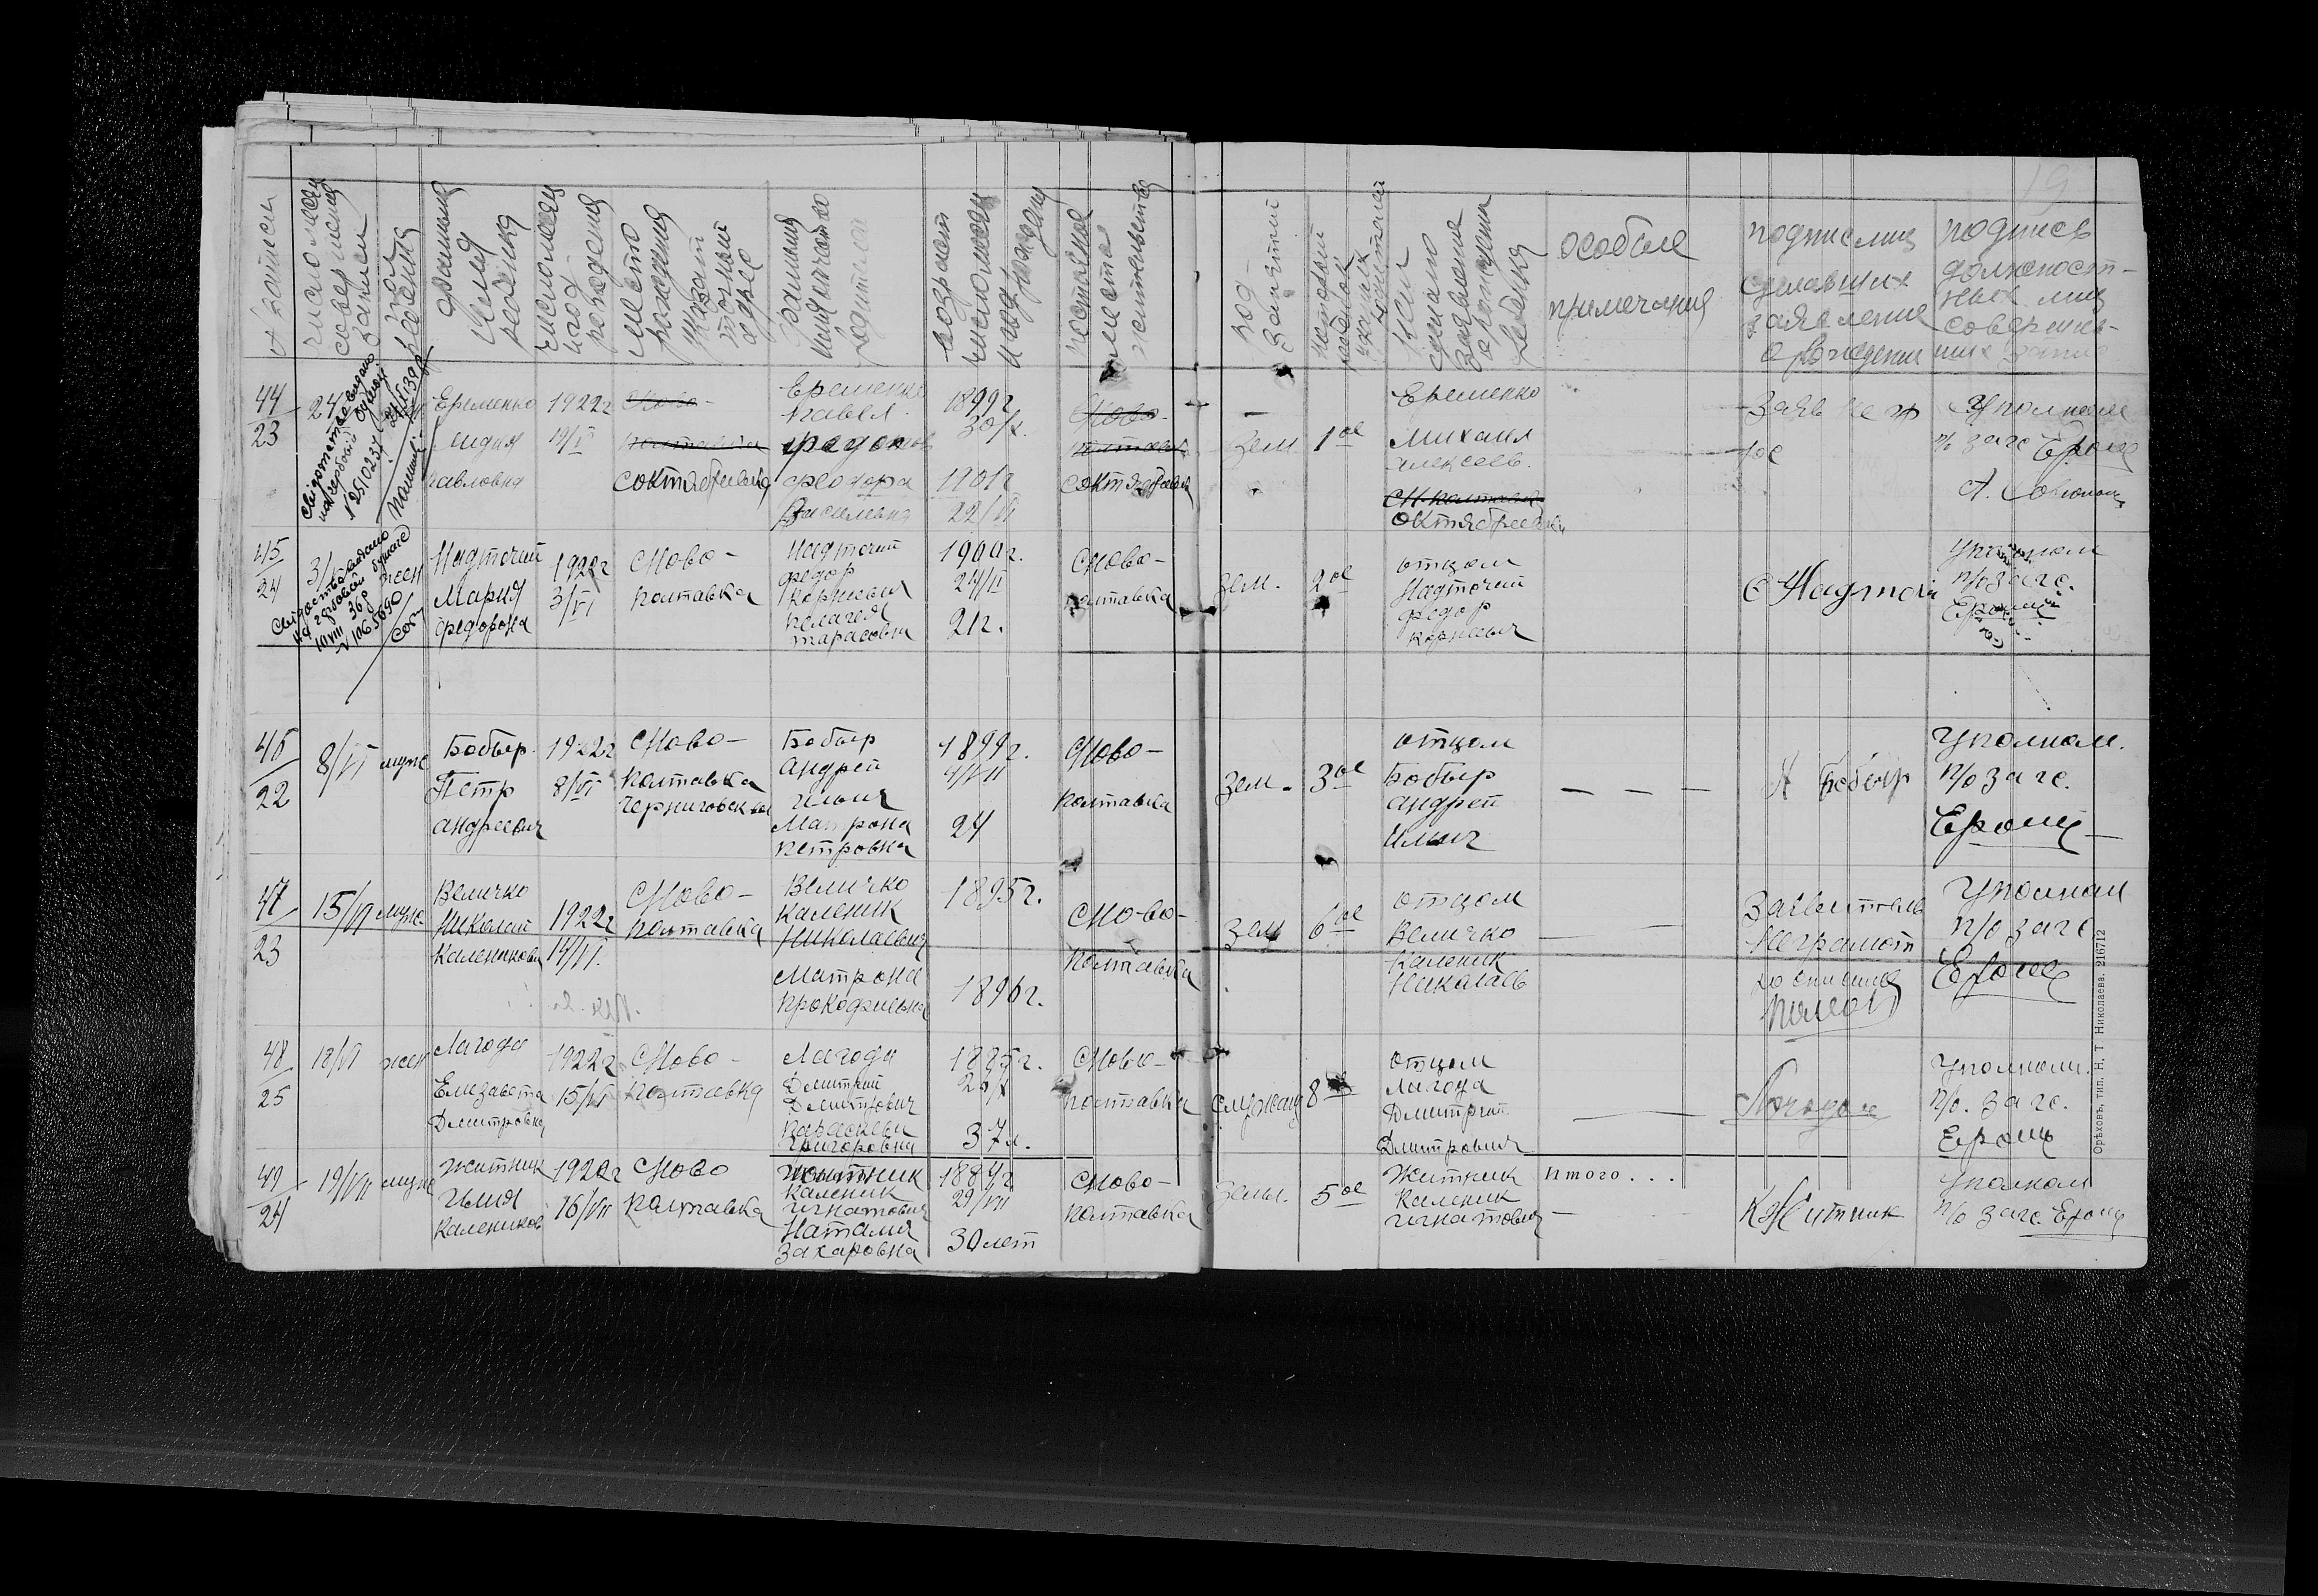 19
№ записи
число месяц
совершения
записи
пол
ребенка
фамилия
имя
ребенка
число месяц
и год
рождения
место
рождения
указат
точный
адрес
фамилия
имя отчество
родителей
возраст
число месяц
и год
рождения
постоянное
место
жительства
род
занятий
который
ребенок
у родителей
кем
сделано
заявление
о рождении
ребенка
особые
примечания
подпис лиц
сделавших
заявление
о рождении
подпись
должност-
ных лиц
соверши-
ших запис
44
23
24
Еременко
Лидия
Павловна
1922г
19/VI
Ново-
полтавка
с Октябревка
Еременко
Павел
Федора
Васильевна
1899г
30/X.
1901г
22/VI
с Ново-
полтавка
с Октябревка
зем
1ое
Еременко
Михаил
Алексеев.
с Н. полтавка
Октябревка
Заяв негр
Уполном
п/о загс Ерощ
Свідоцтво видано
на гербовій бумазі
№ 251023
45
24
3/VI
жен
Надточий
Мария
Федорона
1922г
3/VI
с Ново-
полтавка
Надточий
Федор
Корнеевич
Пелагея
Тарасовна
1900г.
24/II
21г.
с Ново-
полтавка
зем.
2ое
отцом
Надточий
Федор
Корнеевич
Надточи
Уполном
п/о загс.
Ерощ
Свідоцтво видано
на гербовой бумаге
46
22
8/VI
муж
Бобыр
Петр
Андреевич
1922г
8/VI
с Ново-
полтавка
Черниговск вол
Бобыр
Андрей
Ильич
Матрона
Петровна
1899г.
4/VII
24
с Ново-
полтавка
зем.
3ое
отцом
Бобыр
Андрей
Ильич
— — —
А Бобыр
Уполном.
п/о загс.
Ерощ
47
23
15/VI
муж.
Величко
Николай
Каленикови
1922г
14/VI.
с Ново-
полтавка
Величко
Каленик
Николаевич
Матрона
Прокофьевна
1895г.
1896г.
с Ново-
полтавка
зем
6ое
отцом
Величко
Каленик
Николаев
— —
Заявитель
неграмот
Уполном
п/о загс
Ерощ
48
25
18/VI
жен
Лагода
Елизавета
Дмитровна
1922г
15/VI
с Ново-
полтавка
Лагода
Дмитрий
Дмитрович
Параскева
Григоровна
1885г.
37л.
с Ново-
полтавка
служащ
8ое
отцом
Лагода
Дмитрий
Дмитрович
Уполном.
п/о. загс.
Ерощ
49
24
19/VII
муж
Житник
Илия
Калеников
1922г
16/VII
с Ново
полтавка
Житник
Каленик
Игнатович
Наталия
Захаровна
1884г
29/VII
30 лет
с Ново-
полтавка
земл.
5ое
Житник
Каленик
Игнатович
Итого . . .
К Житник
Уполном
п/о загс. Ерощ
Орѣховъ, тип. Н. Т Николаева. 216712